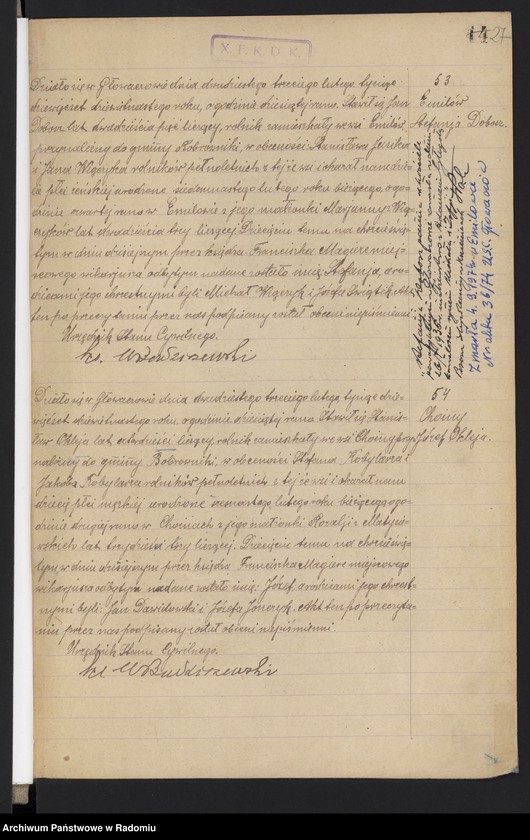 X.F.K.D.K.
27
53
Emilów
Stefanja Dobosz.
Działo się w Głowaczowie dnia dwudziestego trzeciego lutego tysiąc
dziewięćset dziewiętnastego roku, o godzinie dziesiątej rano. Stawił się Jan
Dobosz lat dwadzieścia pięć liczący, rolnik zamieszkały we wsi Emilów
przynależnej do gminy Bobrowniki, w obecności Stanisława
i Jana Węgrzyka rolników pełnoletnich z tejże wsi i okazał nam dziecię
płci żeńskiej urodzone siedemnastego lutego roku bieżącego o go-
dzinie czwartej rano w Emilowie z jego małżonki Marjanny z Węg-
rzyków lat dwadzieścia trzy liczącej. Dziecięciu temu na chrzcie świę-
tym w dniu dzisiejszym przez księdza Franciszka Magiera miej-
scowego wikarjusza odbytym nadane zostało imię: Stefanja, a ro-
dzicami jego chrzestnymi byli Michał Węgrzyk i Józefa Akt
ten po przeczytaniu przez nas podpisany został obecni niepiśmienni.
Urzędnik Stanu Cywilnego.
ks.
Zmarła 4.3.1974 w Emilowie
Nr aktu 36/74 USC Głowaczów
54
Choiny
Józef Ohleja.
Działo się w Głowaczowie dnia dwudziestego trzeciego lutego tysiąc dzie-
więćset dziewiętnastego roku, o godzinie dziesiątej rano. Stawił się Stanis-
ław Ohleja lat czterdzieści liczący, rolnik zamieszkały we wsi Choiny przy-
należnej do gminy Bobrowniki, w obecności Stefana Kobylarza i
Jakóba Kobylarza rolników pełnoletnich z tejże wsi i okazał nam
dziecię płci męskiej urodzone ósmastego lutego roku bieżącego o go-
dzinie drugiej rano w Choinach z jego małżonki Rozalji z Matysia-
ków lat trzydzieści trzy liczącej. Dziecięciu temu na chrzcie świę-
tym w dniu dzisiejszym przez księdza Franciszka Magiera miejscowego
wikarjusza odbytym nadane zostało imię: Józef, a rodzicami jego chrzest-
nymi byli: Jan Dawidowski i Józefa Akt ten po przeczyta-
niu przez nas podpisany został obecni niepiśmienni.
Urzędnik Stanu Cywilnego.
ks.
Archiwum Państwowe w Radomiu